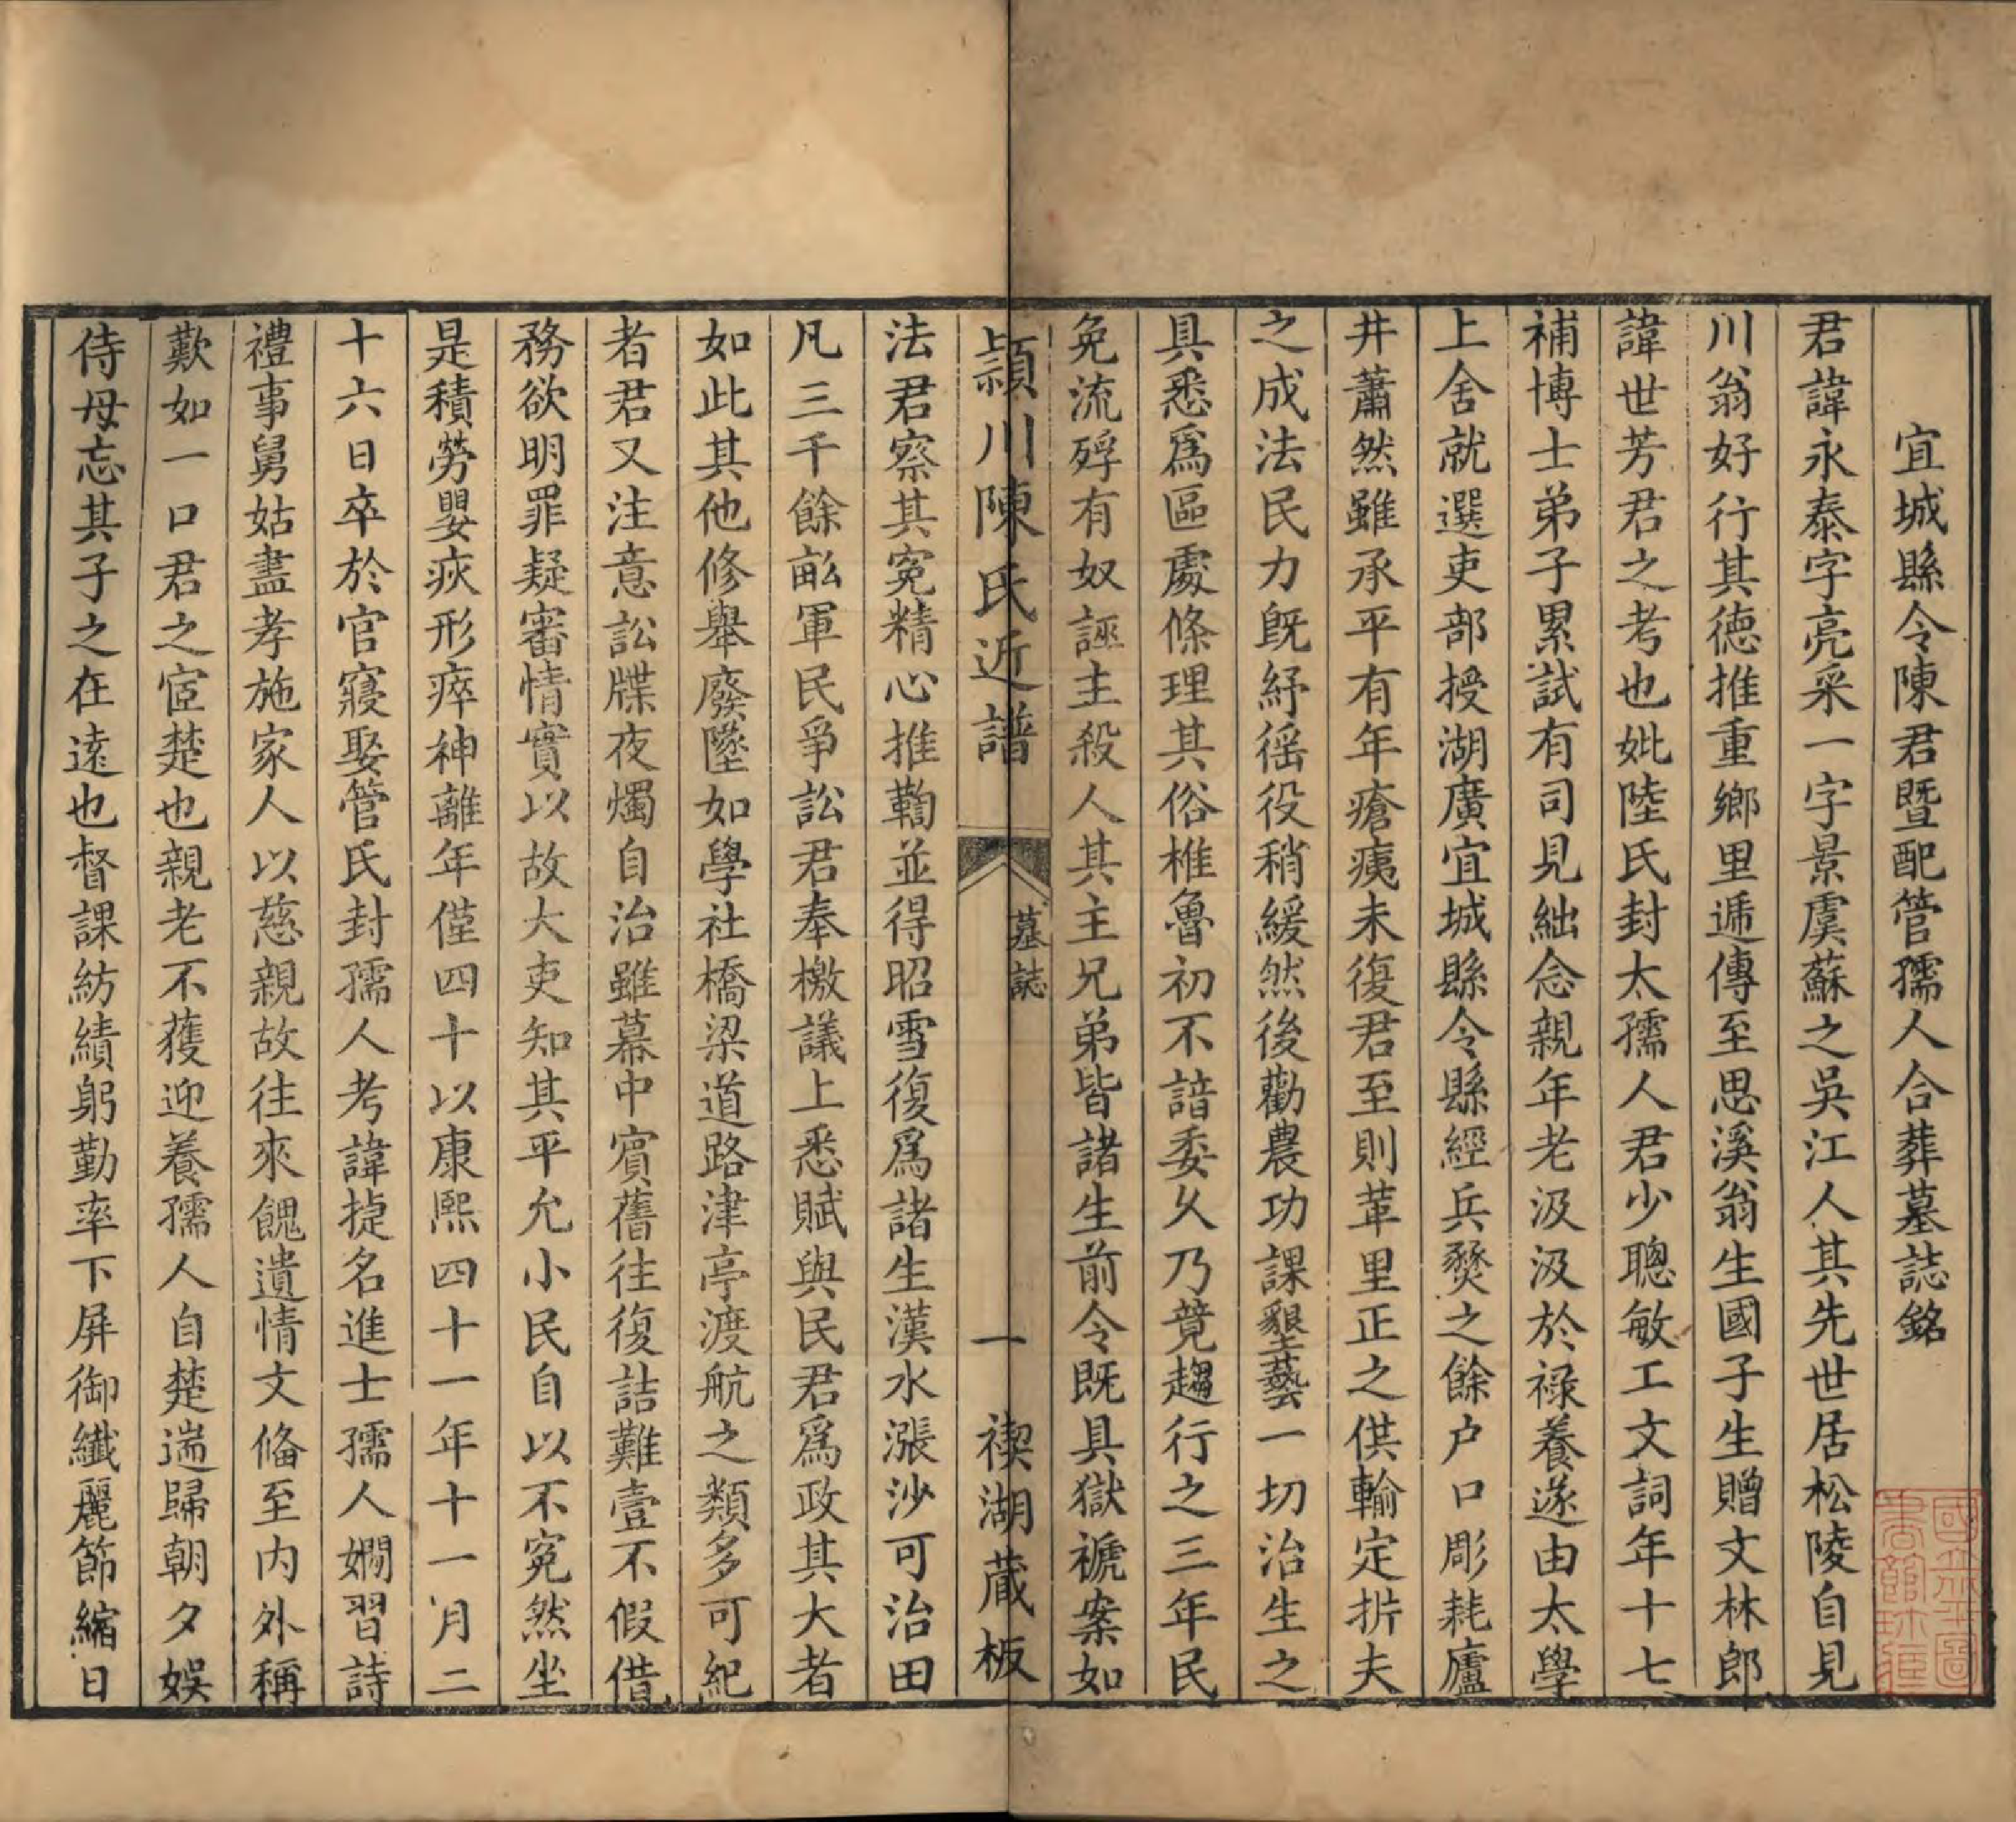 宜城縣令陳君暨配管孺人合葬墓誌銘
君諱永泰字亮采一字景虞蘇之吳江人其先世居松陵自見
川翁好行其德推重鄉里遞傳至思溪翁生國子生贈文林郎
諱世芳君之考也妣陸氏封太孺人君少聰敏工文詞年十七
補博士弟子累試有司見絀念親年老汲汲於祿養遂由太學
上舍就選吏部授湖廣宜城縣令縣經兵燹之餘户口彫耗廬
井蕭然雖承平有年瘡痍未復君至則革里正之供輸定折夫
之成法民力旣紓徭役稍緩然後勸農功課墾藝一切治生之
具悉爲區處條理其俗椎魯初不諳委乆乃竟趨行之三年民
免流殍有奴誣主殺人其主兄弟皆諸生前令既具獄褫案如
潁川陳氏近譜 墓誌 一 禊湖藏板
法君察其冤精心推鞫並得昭雪復爲諸生漢水漲沙可治田
凡三千餘畝軍民爭訟君奉檄議上悉賦與民君爲政其大者
如此其他修舉廢墜如學社橋梁道路津亭渡航之類多可紀
者君又注意訟牒夜燭自治雖幕中賓舊往復詰難壹不假借
務欲明罪疑審情實以故大吏知其平允小民自以不冤然坐
是積勞嬰疢形瘁神離年僅四十以康熙四十一年十一月二
十六日卒於官寢娶管氏封孺人考諱㨗名進士孺人嫻習詩
禮事舅姑盡孝施家人以慈親故往來餽遺情文俻至内外稱
歎如一口君之宦楚也親老不獲迎養孺人自楚遄歸朝夕娛
侍母忘其子之在遠也督課紡績躬勤率下屏御纖麗節縮日
國立北平圖書館珎藏